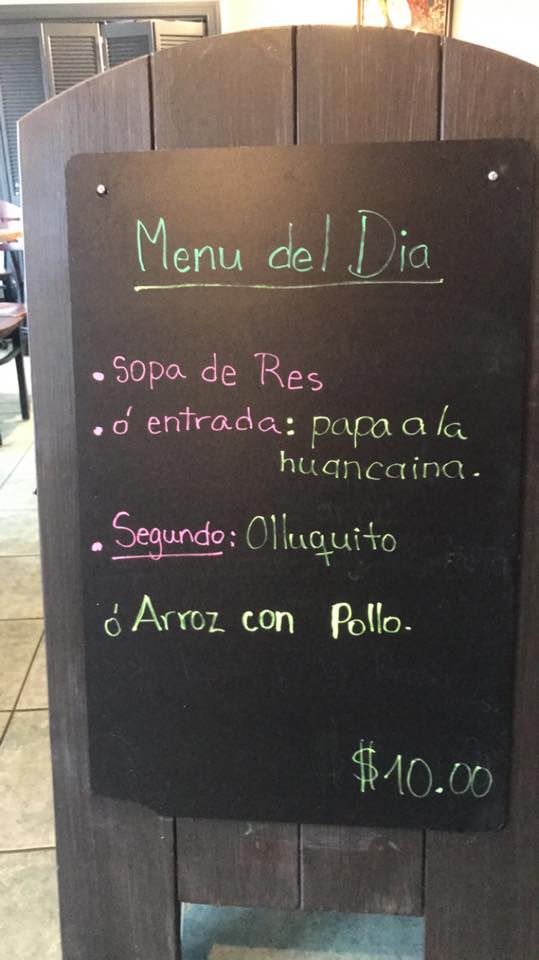 Menu del Dia
• Sopa de Res
• ó entrada: papa a la
huancaina.
• Segundo: Olluquito
ó Arroz con Pollo.
$10.00